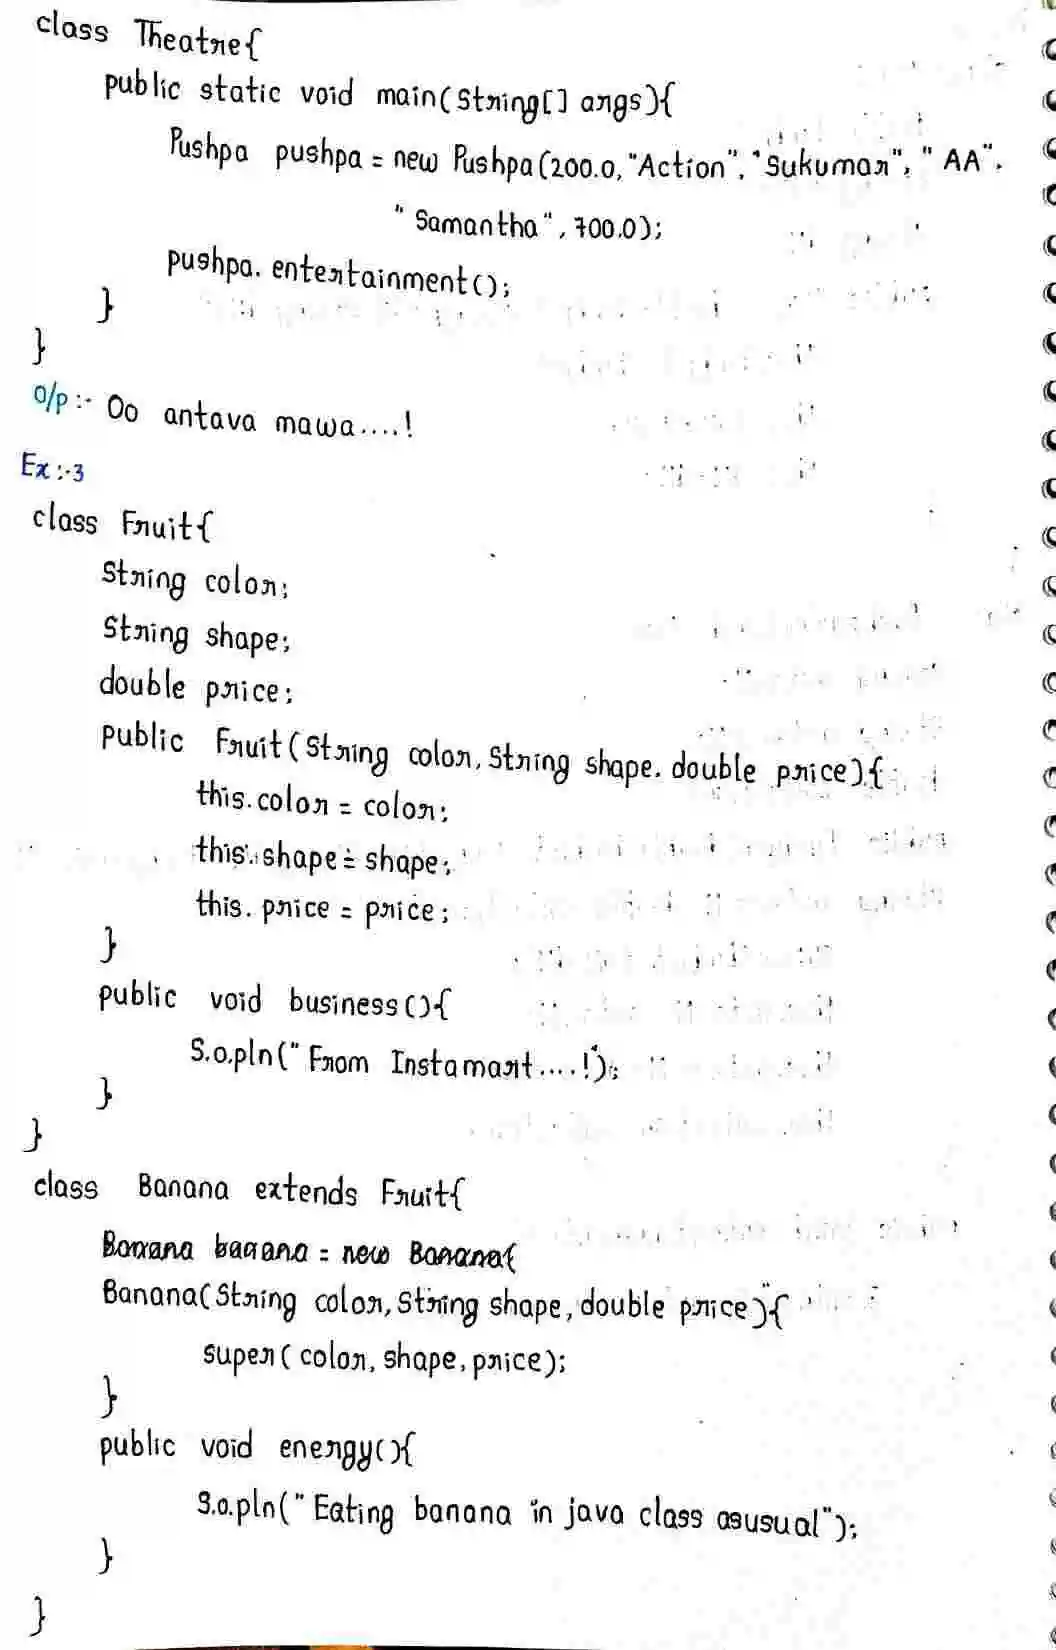 class Theatre{
public static void main(String[] args){
Pushpa pushpa = new Pushpa(200.0, "Action", "Sukumar", "AA",
"Samantha", 700.0);
pushpa.entertainment();
}
}
O/p :- Oo antava mawa....!
Ex:-3
class Fruit{
String color;
String shape;
double price;
public Fruit(String color, String shape, double price){
this.color = color;
this.shape = shape;
this.price = price;
}
public void business(){
S.o.pln("From Instamart....!");
}
}
class Banana extends Fruit{
Banana banana = new Banana{
Banana(String color, String shape, double price){
super(color, shape, price);
}
public void energy(){
S.o.pln("Eating banana in java class asusual");
}
}